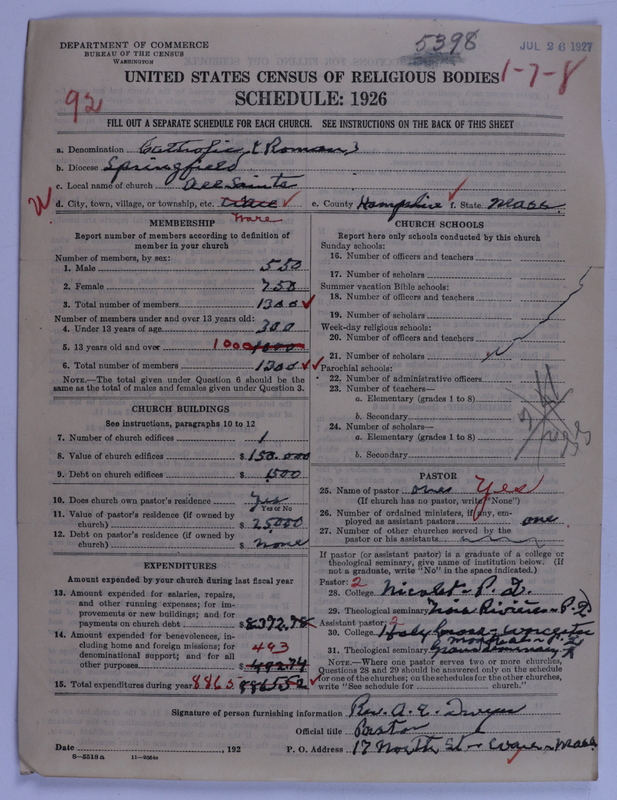 DEPARTMENT OF COMMERCE
BUREAU OF THE CENSUS
WASHINGTON
5398
JUL 26 1927
UNITED STATES CENSUS OF RELIGIOUS BODIES
1-7-8
SCHEDULE: 1926
92
FILL OUT A SEPARATE SCHEDULE FOR EACH CHURCH. SEE INSTRUCTIONS ON THE BACK OF THIS SHEET
a. Denomination Catholic (Roman)
b. Diocese Springfield
c. Local name of church All Saints
d. City, town, village, or township, etc. Ware e. County Hampshire f. State Mass.
Ware
MEMBERSHIP
Report number of members according to definition of
member in your church
Number of members, by sex:
1. Male 550
2. Female 750
3. Total number of members 1300
Number of members under and over 13 years old:
4. Under 13 years of age 300
5. 13 years old and over 1000 1000
6. Total number of members 1300
NOTE.—The total given under Question 6 should be the
same as the total of males and females given under Question 3.
CHURCH BUILDINGS
See instructions, paragraphs 10 to 12
7. Number of church edifices 1
8. Value of church edifices $150.000
9. Debt on church edifices $1500
10. Does church own pastor's residence Yes
Yes or No
11. Value of pastor's residence (if owned by
church) $25000
12. Debt on pastor's residence (if owned by
church) $None
EXPENDITURES
Amount expended by your church during last fiscal year
13. Amount expended for salaries, repairs,
and other running expenses; for im-
provements or new buildings; and for
payments on church debt $8372.78
14. Amount expended for benevolences, in-
cluding home and foreign missions; for
denominational support; and for all
other purposes $492.74
493
15. Total expenditures during year 8865 886552
CHURCH SCHOOLS
Report here only schools conducted by this church
Sunday schools:
16. Number of officers and teachers
17. Number of scholars
Summer vacation Bible schools:
18. Number of officers and teachers
19. Number of scholars
Week-day religious schools:
20. Number of officers and teachers
21. Number of scholars
Parochial schools:
22. Number of administrative officers
23. Number of teachers—
a. Elementary (grades 1 to 8)
b. Secondary
24. Number of scholars—
a. Elementary (grades 1 to 8)
b. Secondary
PASTOR
25. Name of pastor Yes
(If church has no pastor, write "None")
26. Number of ordained ministers, if any, em-
ployed as assistant pastors one
27. Number of other churches served by the
pastor or his assistants
If pastor (or assistant pastor) is a graduate of a college or
theological seminary, give name of institution below. (If
not a graduate, write "No" in the space indicated.)
Pastor: 2
28. College Nicolet - P. Q.
29. Theological seminary Trois Rivieres - P. Q
Assistant pastor: 2
30. College Holy Cross - Worcester
Montreal - P. Q
31. Theological seminary Grand Seminary
NOTE.—Where one pastor serves two or more churches,
Questions 28 and 29 should be answered only on the schedule
for one of the churches; on the schedules for the other churches,
write "See schedule for church."
Signature of person furnishing information Rev. A. E. Dwyer
Official title Pastor
Date , 192 P. O. Address 17 North St - Ware - Mass.
8—5518a 11—9564a